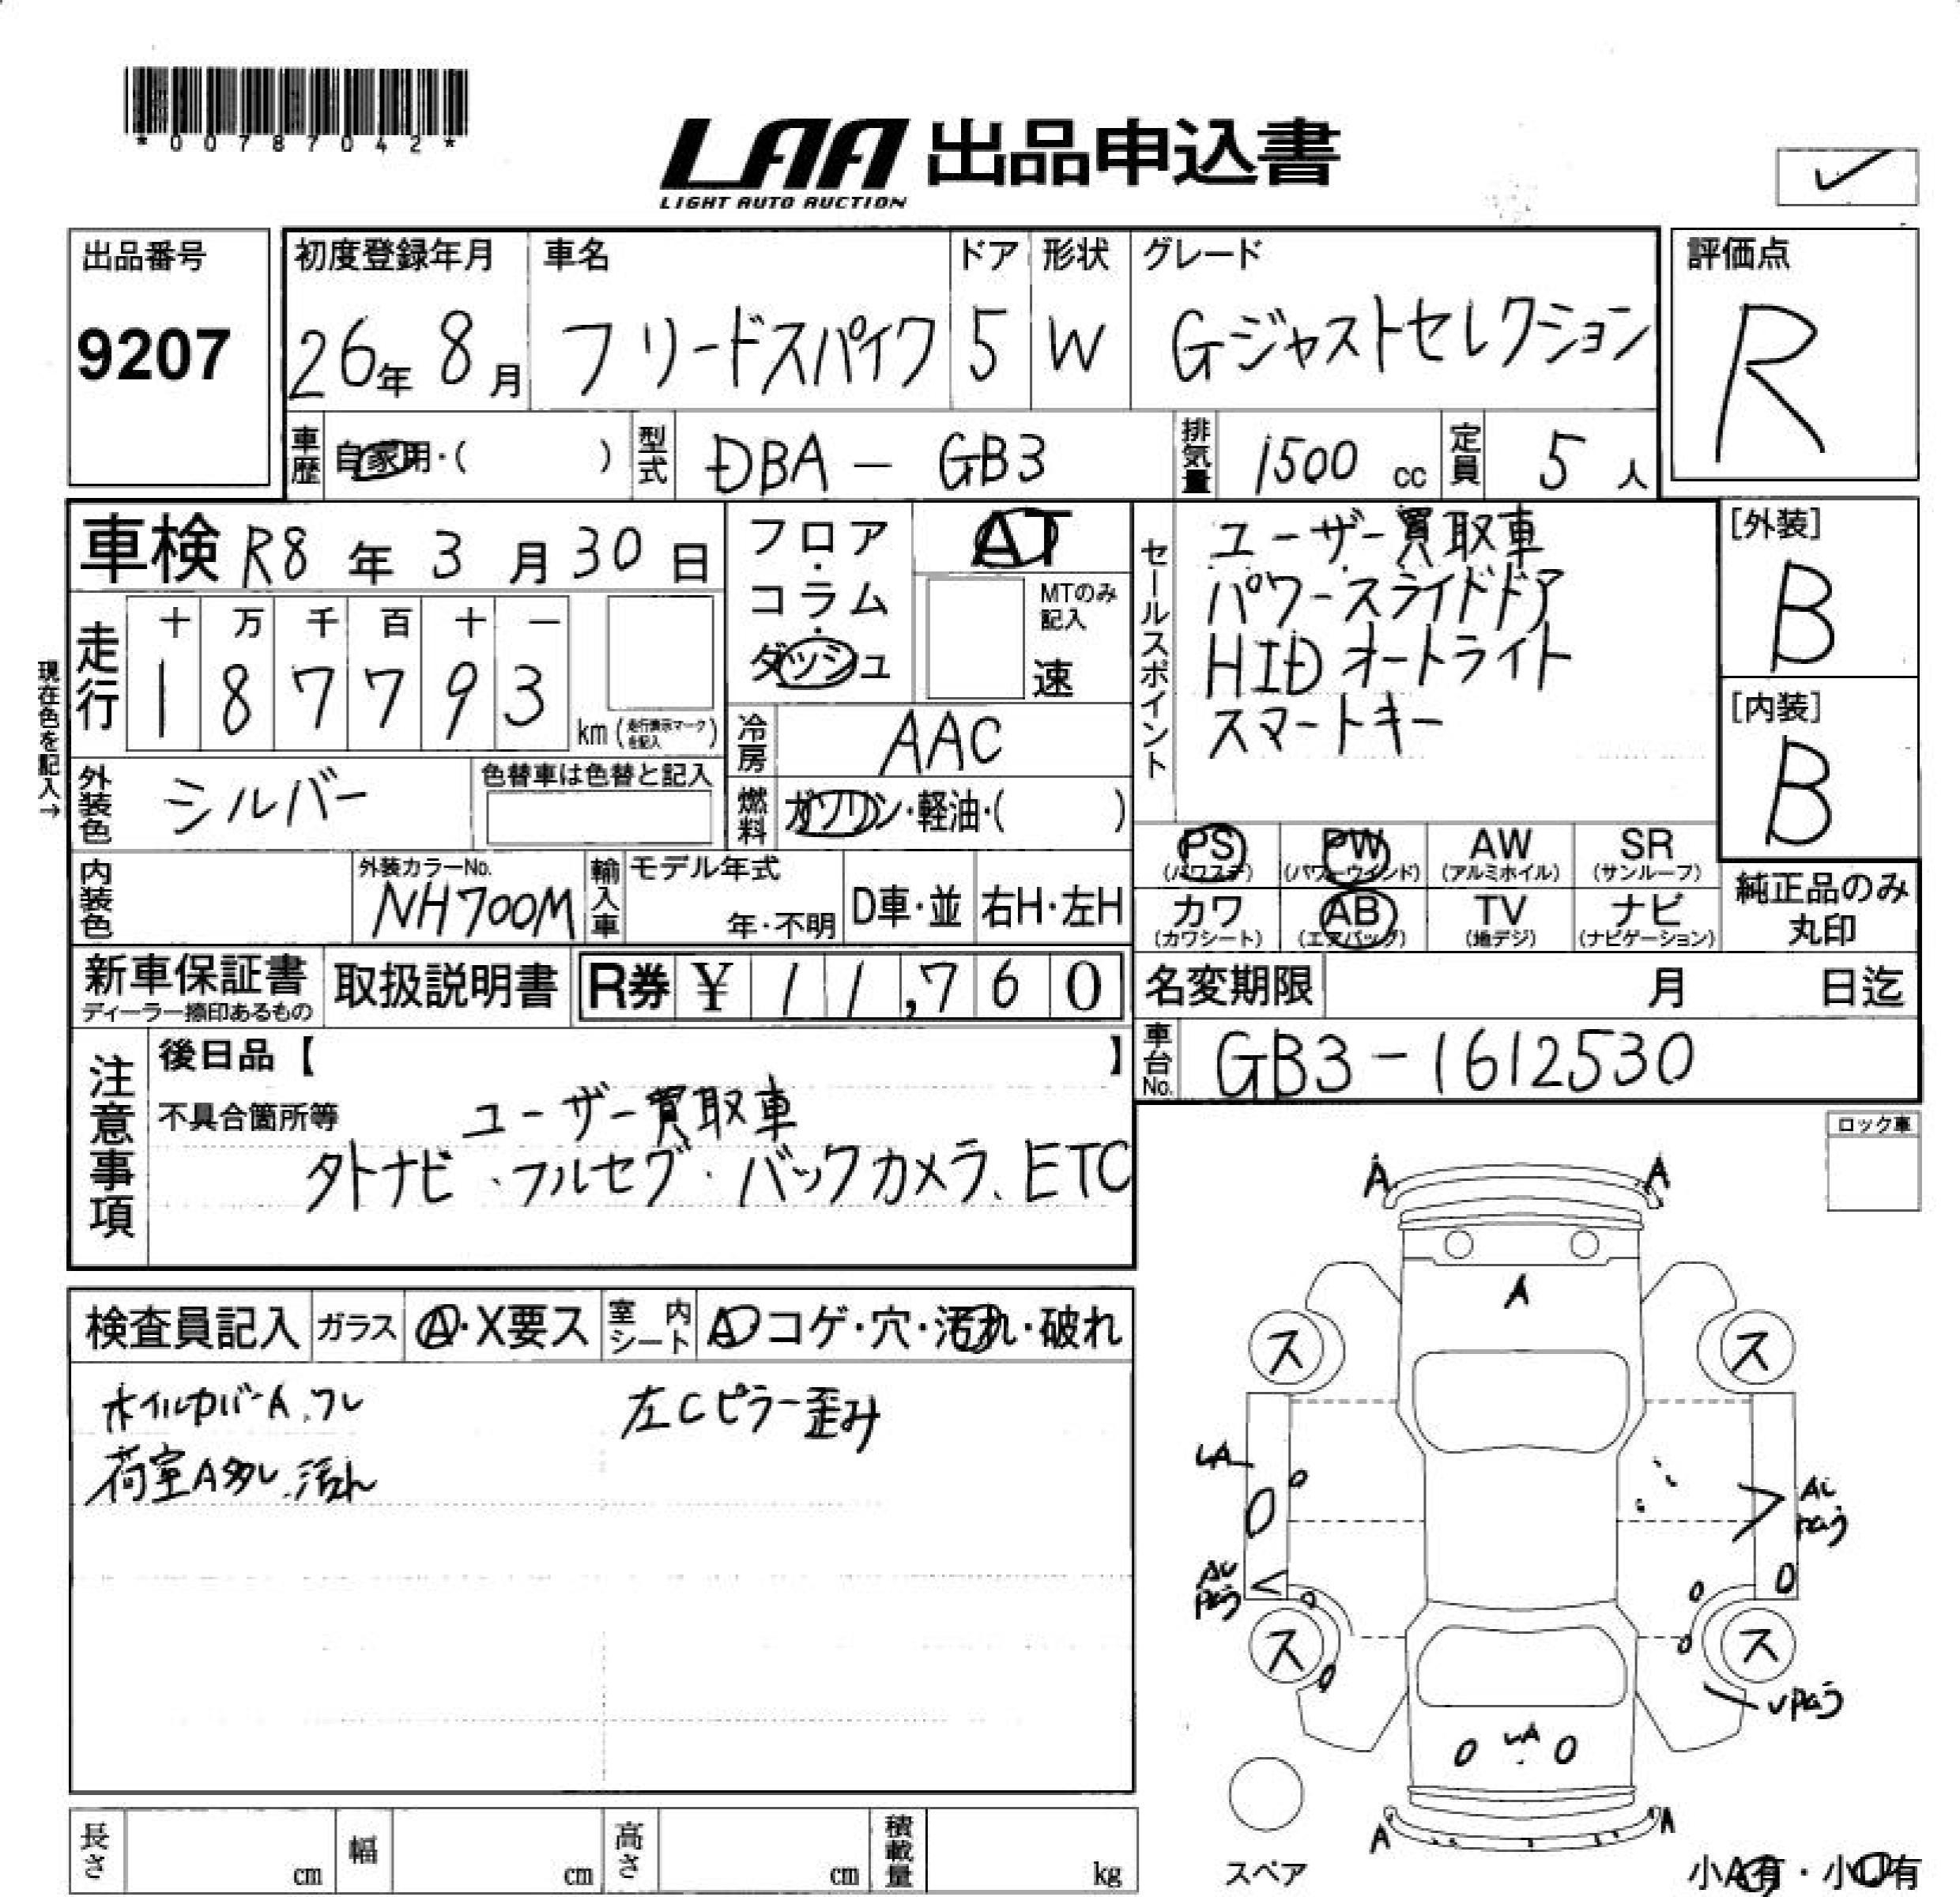 *00787042*
LAA 出品申込書
LIGHT AUTO AUCTION
出品番号
9207
初度登録年月 車名 ドア 形状 グレード
26年 8月 フリードスパイク 5 W Gジャストセレクション
評価点
R
車歴 自家用・( ) 型式 DBA - GB3 排気量 1500 cc 定員 5 人
車検 R8 年 3 月 30 日
フロア・コラム・ダッシュ
AT
MTのみ記入
速
走行 十 万 千 百 十 一
1 8 7 7 9 3 km (走行表示マークを記入)
現在色を記入→
冷房 AAC
外装色 シルバー 色替車は色替と記入
燃料 ガソリン・軽油・( )
セールスポイント
ユーザー買取車
パワースライドドア
HID オートライト
スマートキー
[外装]
B
[内装]
B
PS (パワステ) PW (パワーウインド) AW (アルミホイル) SR (サンルーフ)
カワ (カワシート) AB (エアバック) TV (地デジ) ナビ (ナビゲーション)
純正品のみ
丸印
内装色 外装カラーNo. NH700M 輸入車 モデル年式 年・不明 D車・並 右H・左H
新車保証書 取扱説明書 R券 ¥ 11,760
ディーラー捺印あるもの
名変期限 月 日迄
車台No. GB3-1612530
注意事項
後日品【 】
不具合箇所等 ユーザー買取車
外ナビ、フルセグ・バックカメラ、ETC
ロック車
検査員記入 ガラス A・X要ス 室内シート A コゲ・穴・汚れ・破れ
ホイルカバーA、ワレ
左Cピラー歪み
荷室A多し、汚れ
A A
A
ス ス
LA
AU
ス ス
LA
A A
スペア
小A有・小U有
長さ cm 幅 cm 高さ cm 積載量 kg